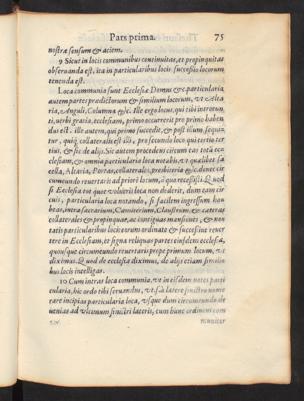 Pars prima. 75
nostræ sensum & aciem.
9 Sicut in locis communibus continuitas, et propinquitas
obseruanda est, ita in particularibus locis successio locorum
tenenda est.
Loca communia sunt Ecclesiæ Domus & c particularia
autem partes prædictorum & similium locorum, vt Alta-
ria, Anguli, Columnæ & c. Ille ergo locus, qui tibi intran-
ti, verbi gratia, ecclesiam, primo occurrerit pro primo haben
dus est. ille autem, qui primo succedit, & post illum sequu-
tur, quia collateralis est illi, pro secundo loco qui tertio ter
tius, & sic de alijs. Sic autem procedes circum cas totã ec-
clesiam, & omnia particularia loca notabis, vt quælibet sa
cella, Altaria, Portas, collaterales, presbiteriũ & c. donec cir
cumeundo reuertaris ad primũ locum, à quo recessisti. Quod
si Ecclesia tot quot volueris loca non dederit, etiam eam cir
cuis, particularia loca notando, si facilem ingressum ha-
beas, intra sacrarium, Cœmiterium, Claustrum, & cæteras
collaterales & propinquas, ac contiguas mansiones, & no-
tatis particularibus locis eorum ordinate & succeßiue reuer
tere in Ecclesiam, et signa reliquas partes eiusdem ecclesiæ,
quousque circumeundo reuertaris prope primum locum, vt
diximus. Quod de ecclesia diximus, de alijs etiam similibus
locis intelligas.
10 Cum intras loca communia, vt in eisdem notes parti
cularia, hic ordo tibi seruandus, vt si à latere sinistro nume
rare incipias particularia loca, vsque dum circumeundo de
uenias ad vltimum sinistri lateris, cum hunc ordinem com
muniter